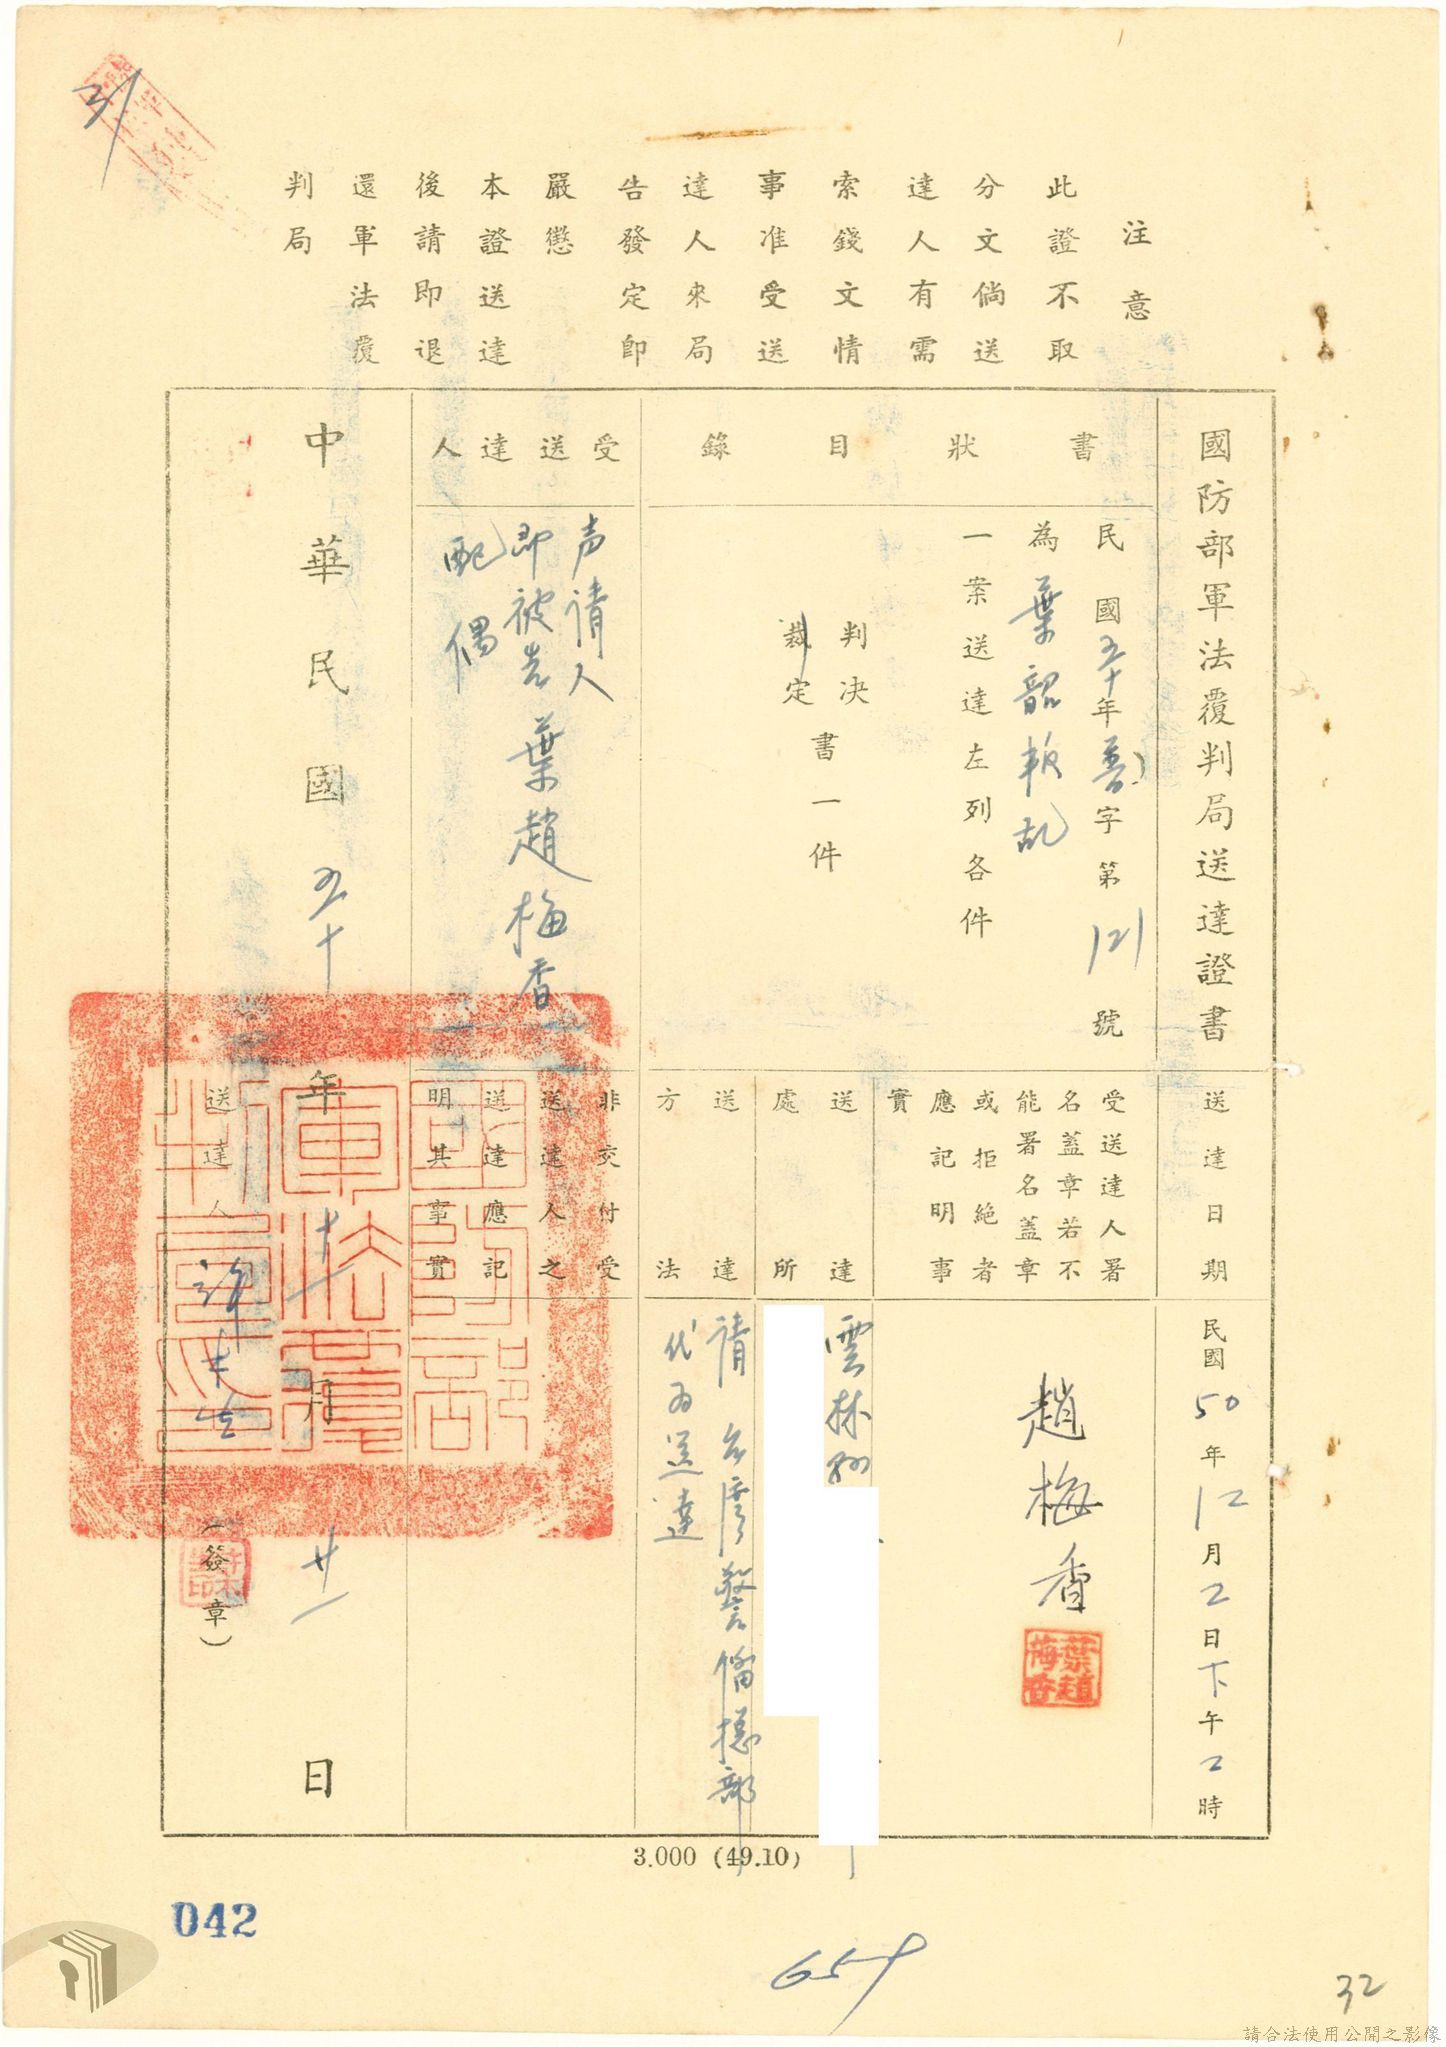 31
注意
此證不取
分文倘送
達人有需
索錢文情
事准受送
達人來局
告發定即
嚴懲
本證送達
後請即退
還軍法覆
判局
國防部軍法覆判局送達證書
書狀目錄
民國五十年普字第121號
為葉韶叛乱
一案送達左列各件
判決
裁定
書一件
受送達人
声請人
即被告葉趙梅香
配偶
送達日期
民國50年12月2日下午2時
受送達人署
名蓋章若不
能署名蓋章
或拒絕者
應記明事
實
趙梅香
葉趙梅香
送達
處所
雲林縣
送達
方法
請台灣警備總部
代為送達
非交付受
送達人之
送達應記
明其事實
中華民國五十年十一月廿一日
國防部軍法覆判局印
送達人
許木生
(簽章)
3.000 (49.10)
042
659
32
請合法使用公開之影像